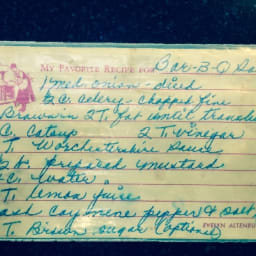 MY FAVORITE RECIPE FOR Bar-B-Q Sa
1 med. onion - diced
2 C. celery - chopped fine
Brown in 2 T. fat until translu
C. Catsup 2 T. vinegar
T. Worchestershire Sauce
prepared mustard
C. water
T. lemon juice
cayenne pepper & salt
T. Brown sugar (optional)
EVELYN ALTENBU